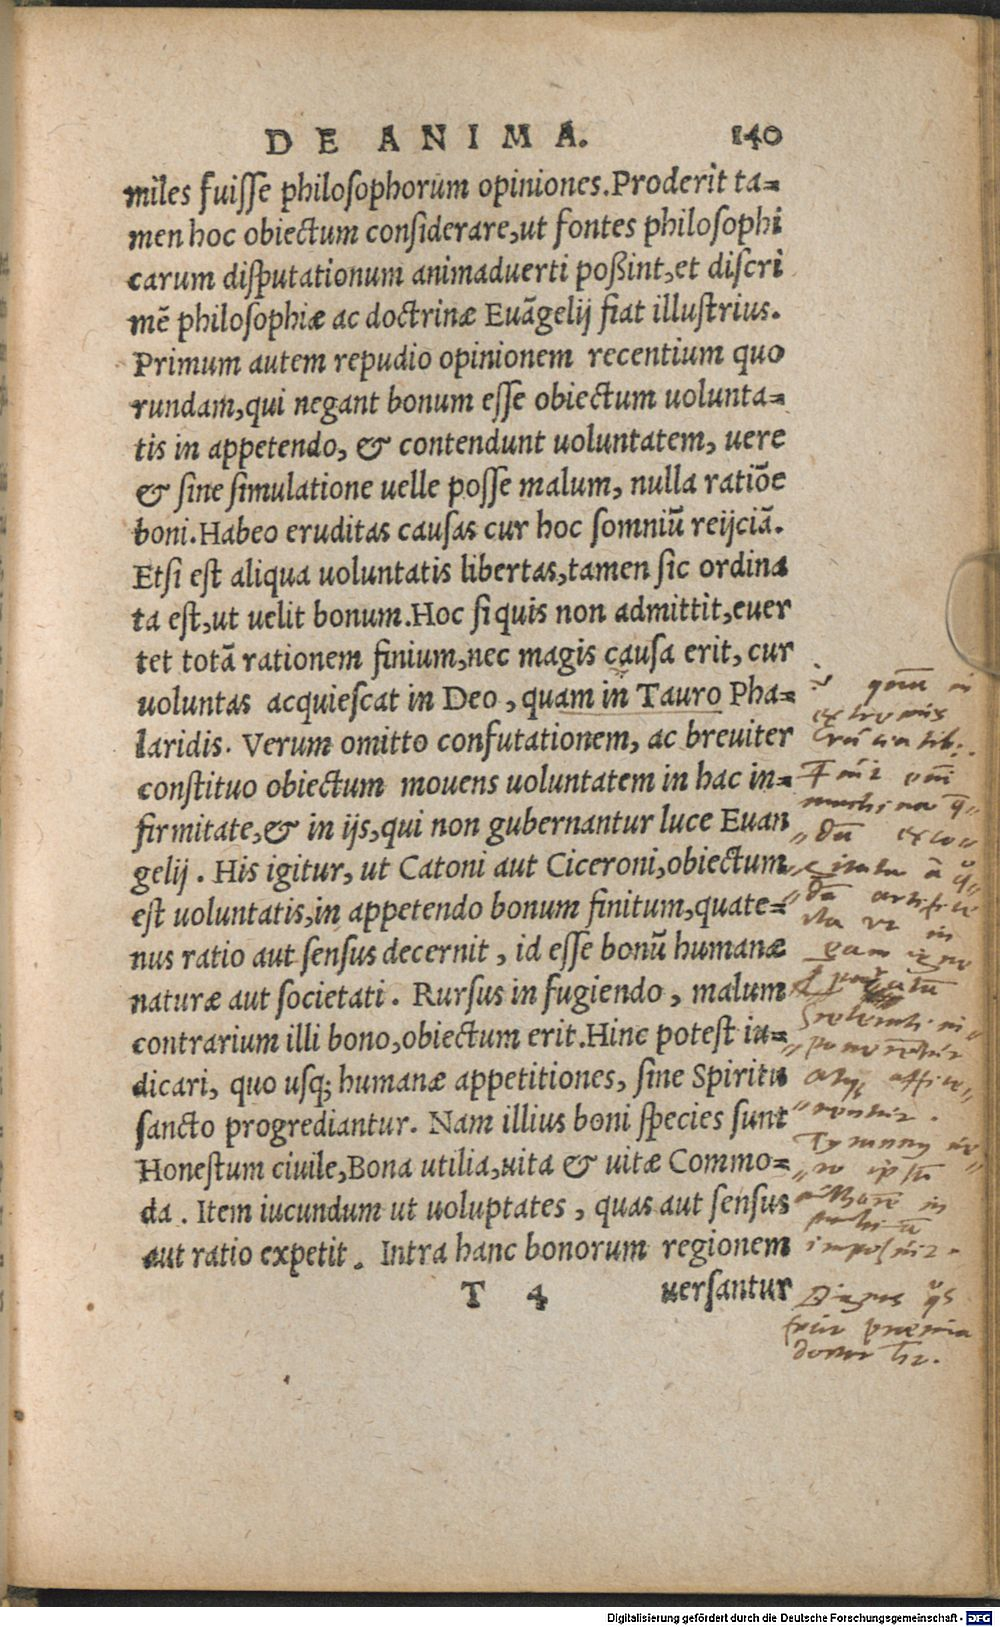 DE ANIMA. 140
miles fuiſſe philoſophorum opiniones.Proderit ta=
men hoc obiectum conſiderare,ut fontes philoſophi
carum diſputationum animaduerti poßint,et diſcri
mē philoſophiæ ac doctrinæ Euãgelij fiat illuſtrius.
Primum autem repudio opinionem recentium quo
rundam,qui negant bonum eſſe obiectum uolunta=
tis in appetendo, & contendunt uoluntatem, uere
& ſine ſimulatione uelle poſſe malum, nulla ratiōe
boni.Habeo eruditas cauſas cur hoc ſomniũ reijciã.
Etſi eſt aliqua uoluntatis libertas,tamen ſic ordina
ta eſt,ut uelit bonum.Hoc ſi quis non admittit,euer
tet totã rationem finium,nec magis cauſa erit, cur
uoluntas acquieſcat in Deo , quam in Tauro Pha=
laridis. Verum omitto confutationem, ac breuiter
conſtituo obiectum mouens uoluntatem in hac in=
firmitate,& in ijs,qui non gubernantur luce Euan
gelij . His igitur, ut Catoni aut Ciceroni,obiectum
eſt uoluntatis,in appetendo bonum finitum,quate=
nus ratio aut ſenſus decernit , id eſſe bonũ humanæ
naturæ aut ſocietati . Rurſus in fugiendo , malum
contrarium illi bono,obiectum erit.Hinc poteſt iu=
dicari, quo uſq; humanæ appetitiones, ſine Spiritu
ſancto progrediantur. Nam illius boni ſpecies ſunt
Honeſtum ciuile,Bona utilia,uita & uitæ Commo=
da . Item iucundum ut uoluptates , quas aut ſenſus
aut ratio expetit . Intra hanc bonorum regionem
T 4 uerſantur
in
in
in
Digitalisierung gefördert durch die Deutsche Forschungsgemeinschaft - DFG